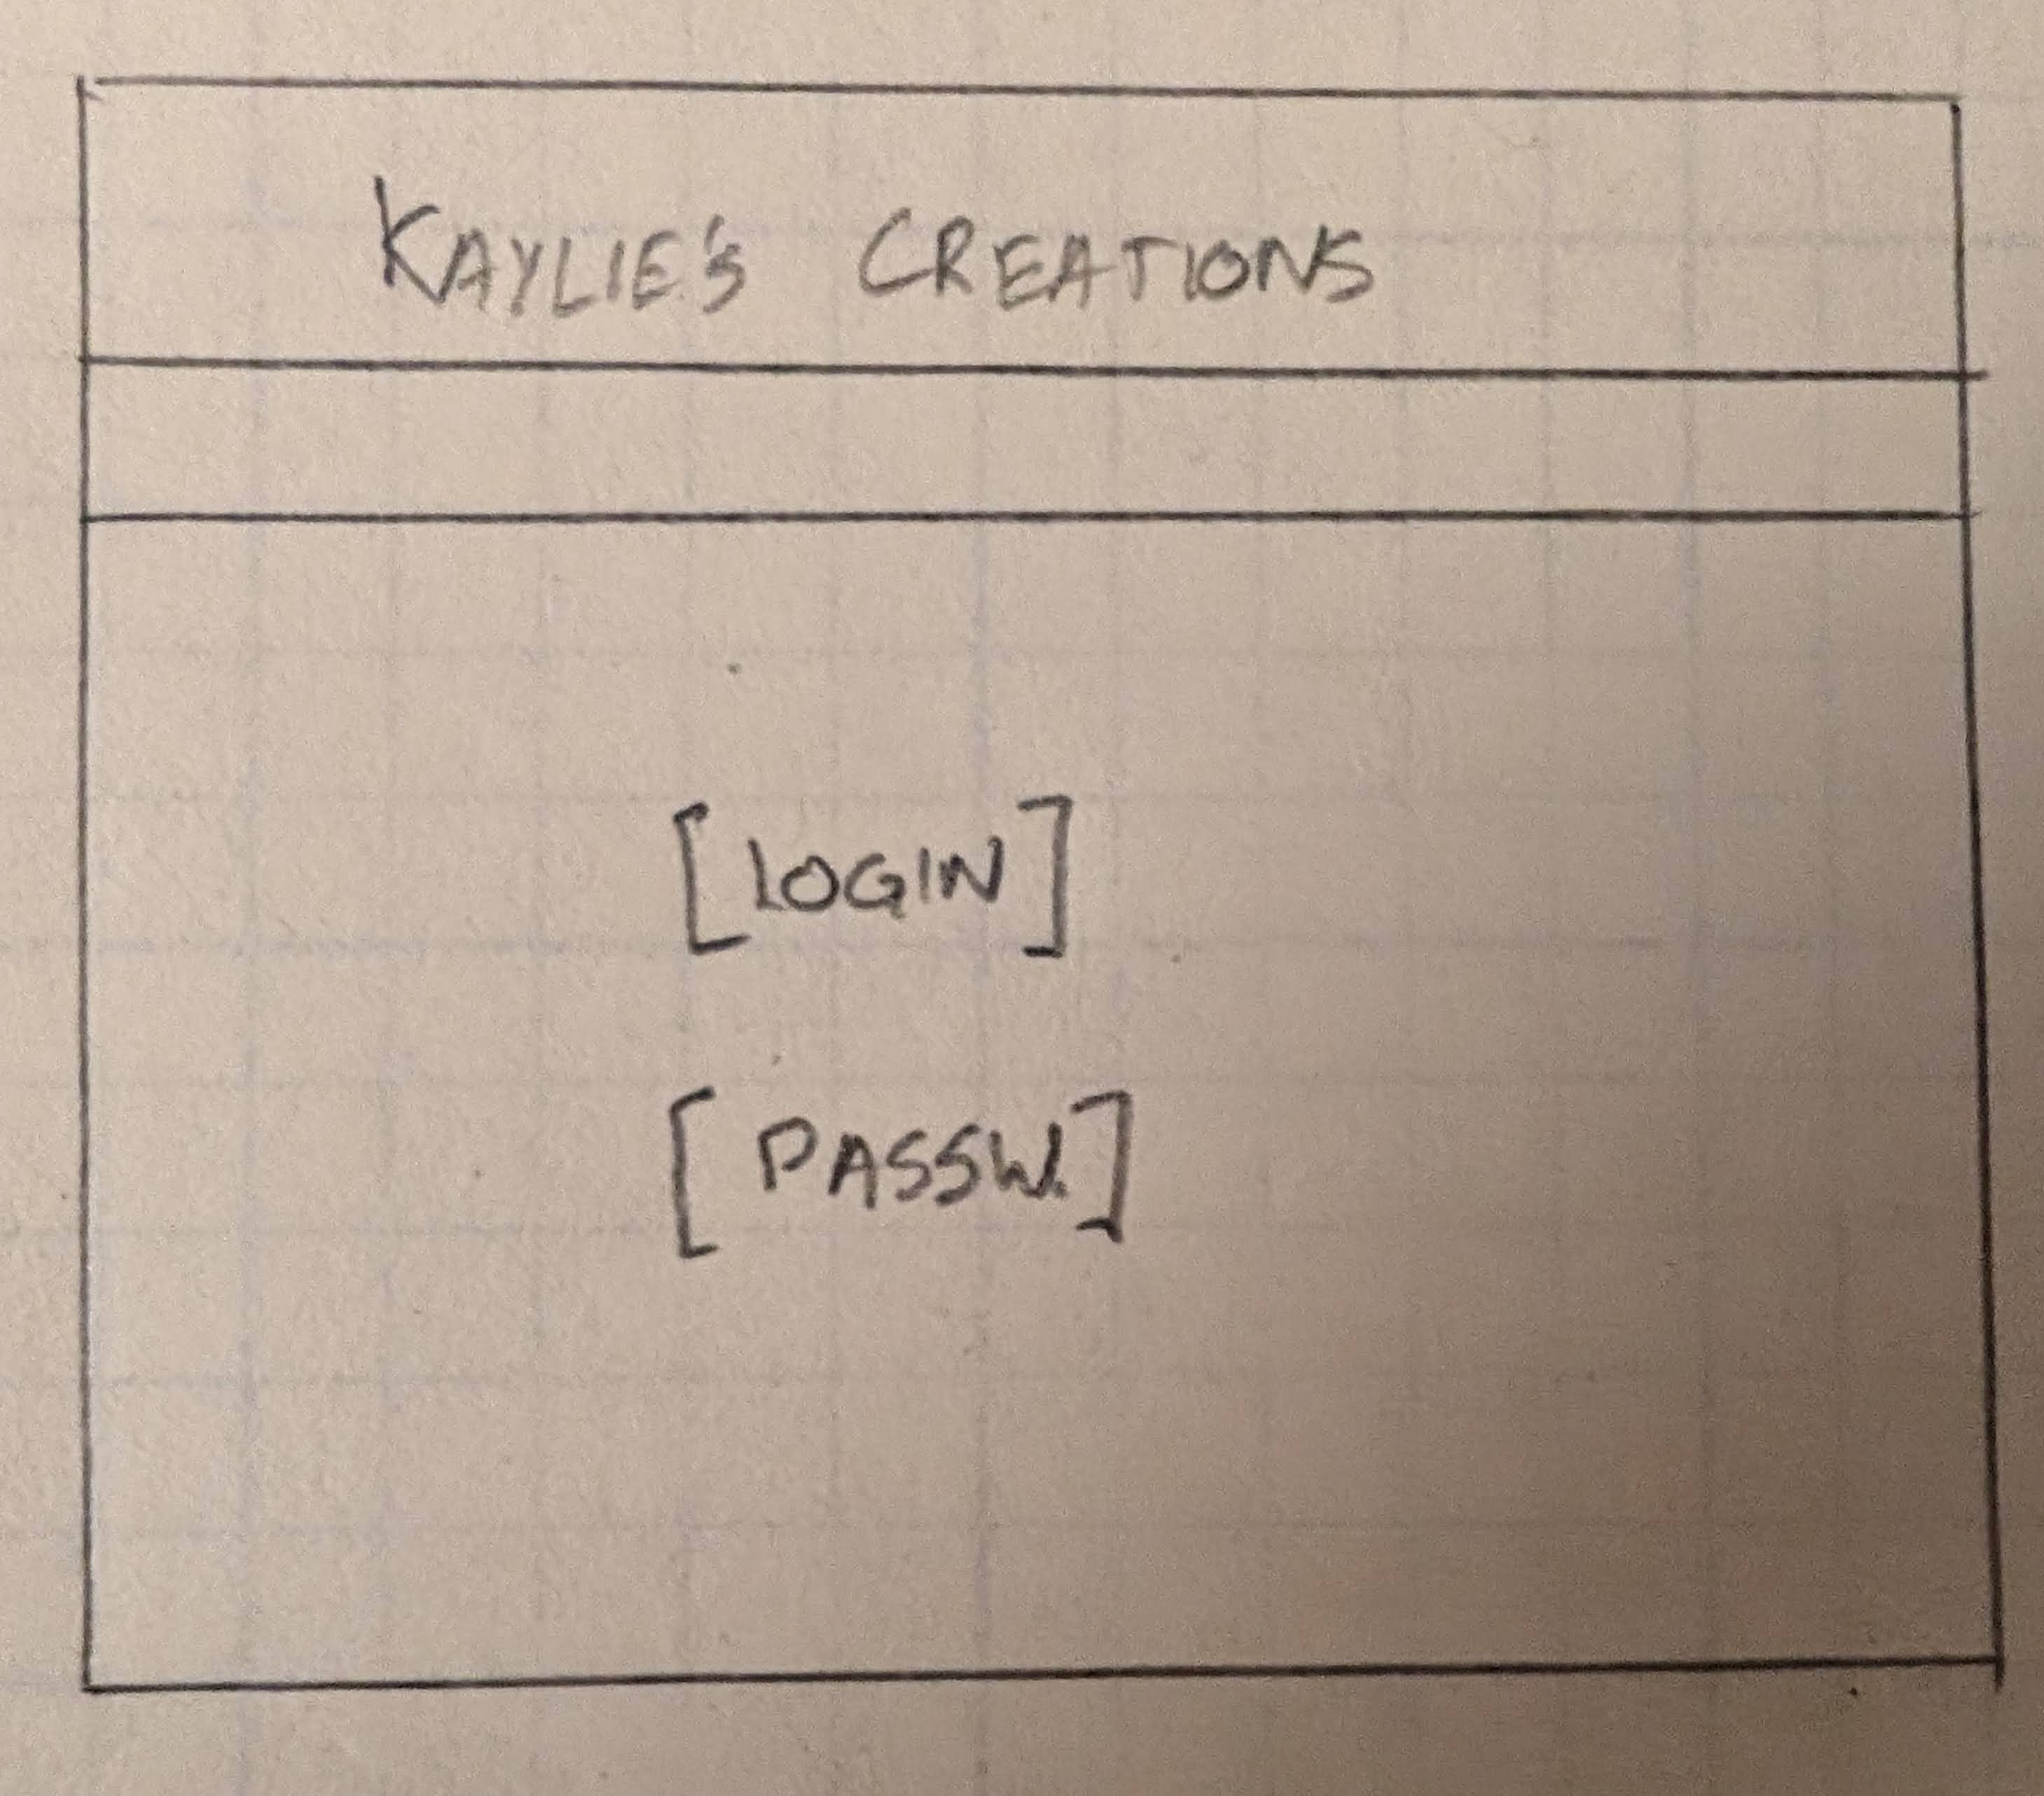 KAYLIE'S CREATIONS
[LOGIN]
[PASSW.]